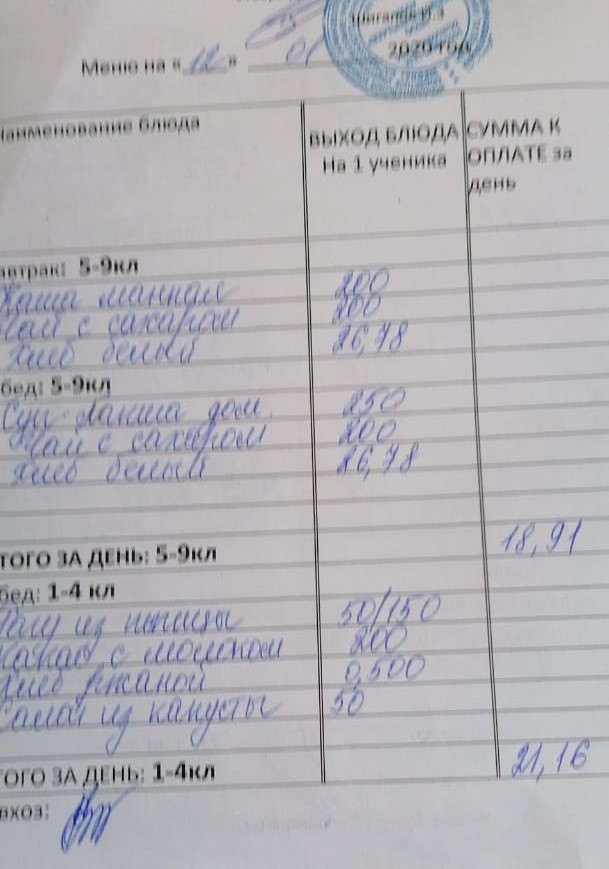 2020 год
Меню на « 12 » 01
наименование блюда
ВЫХОД БЛЮДА
На 1 ученика
СУММА К
ОПЛАТЕ за
день
автрак: 5-9кл
Каша манная 200
Чай с сахаром 200
Хлеб белый 26,78
бед: 5-9кл
Суп-лапша дом. 250
Чай с сахаром 200
Хлеб белый 26,78
ТОГО ЗА ДЕНЬ: 5-9кл 18,91
бед: 1-4 кл
из 50/150
Какао с молоком 200
Хлеб ржаной 0,500
Салат из капусты 50
ТОГО ЗА ДЕНЬ: 1-4кл 21,16
вхоз: